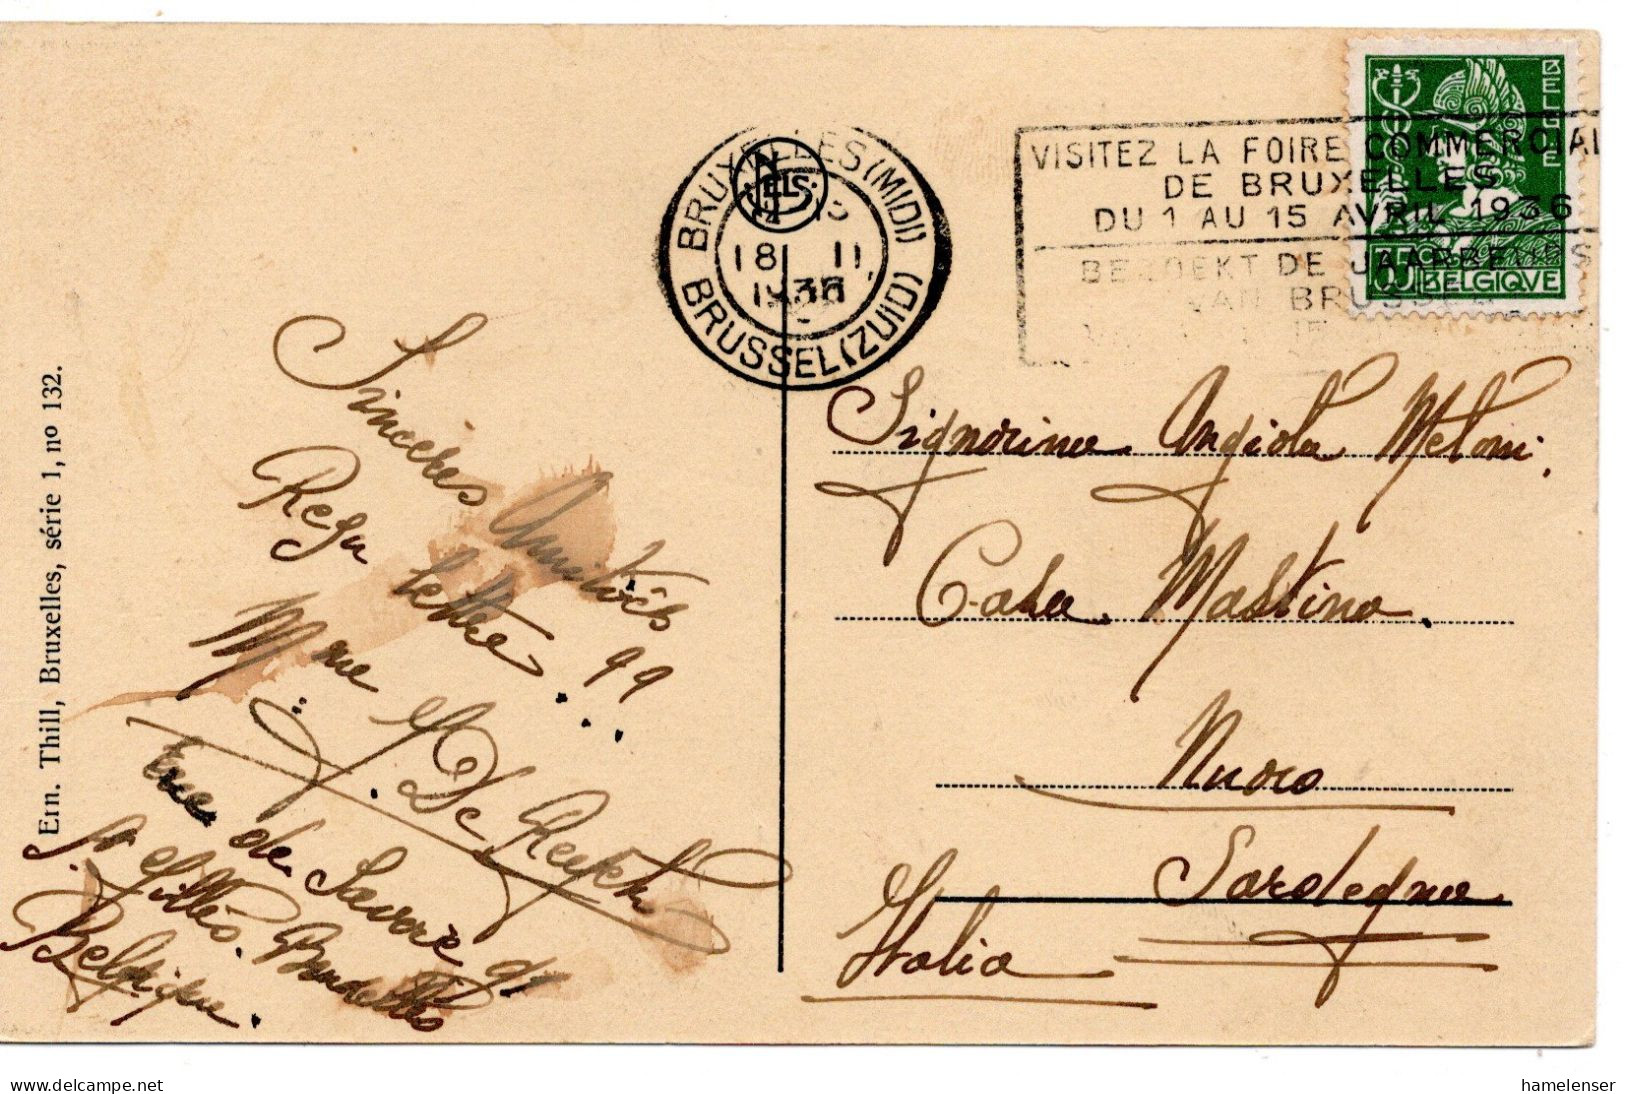 Ern. Thill, Bruxelles, série 1, nº 132.
Sincères Amitiés
Reçu lettre
Mme J. De
rue de Savoie 91
St Gilles. Bruxelles
Belgique.
BRUXELLES (MIDI)
NELS
18 II
1936
BRUSSEL (ZUID)
VISITEZ LA FOIRE COMMERCIAL
DE BRUXELLES
DU 1 AU 15 AVRIL 1936
BEZOEKT DE JAARBEURS
VAN BRUSSEL
BELGIE
35 C
BELGIQVE
Signorina Angiola Meloni.
Casa Mastino.
Nuoro
Sardegna
Italia
hamelenser